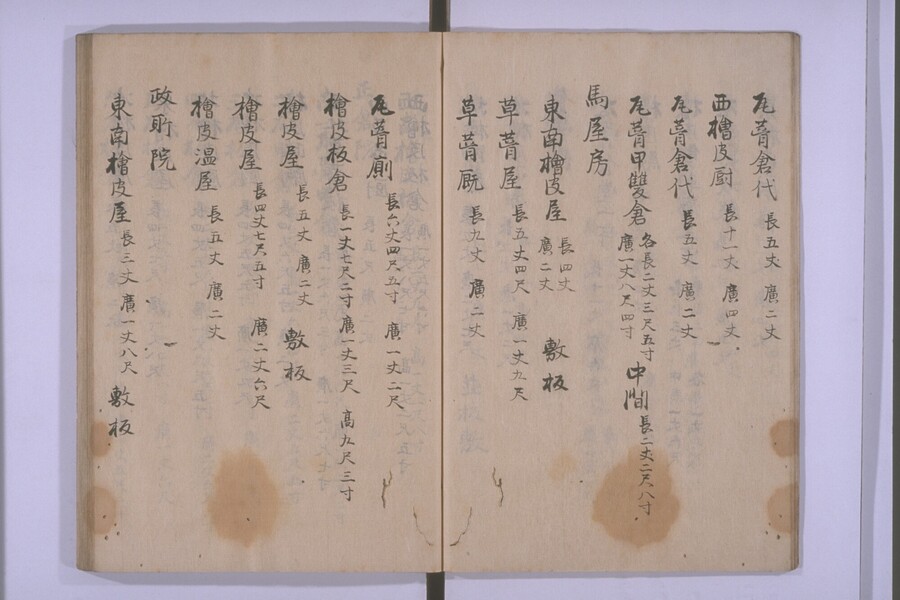 瓦葺倉代 長五丈 廣二丈
西檜皮厨 長十一丈 廣四丈
瓦葺倉代 長五丈 廣二丈
瓦葺甲雙倉 各長二丈三尺五寸 廣一丈八尺四寸 中間 長二丈二尺八寸
馬屋房
東南檜皮屋 長四丈 廣二丈 敷板
草葺屋 長五丈四尺 廣一丈九尺
草葺厩 長九丈 廣二丈
瓦葺廁 長六丈四尺五寸 廣一丈二尺
檜皮板倉 長一丈七尺二寸 廣一丈三尺 高九尺三寸
檜皮屋 長五丈 廣二丈 敷板
檜皮屋 長四丈七尺五寸 廣二丈六尺
檜皮温屋 長五丈 廣二丈
政所院
東南檜皮屋 長三丈 廣一丈八尺 敷板